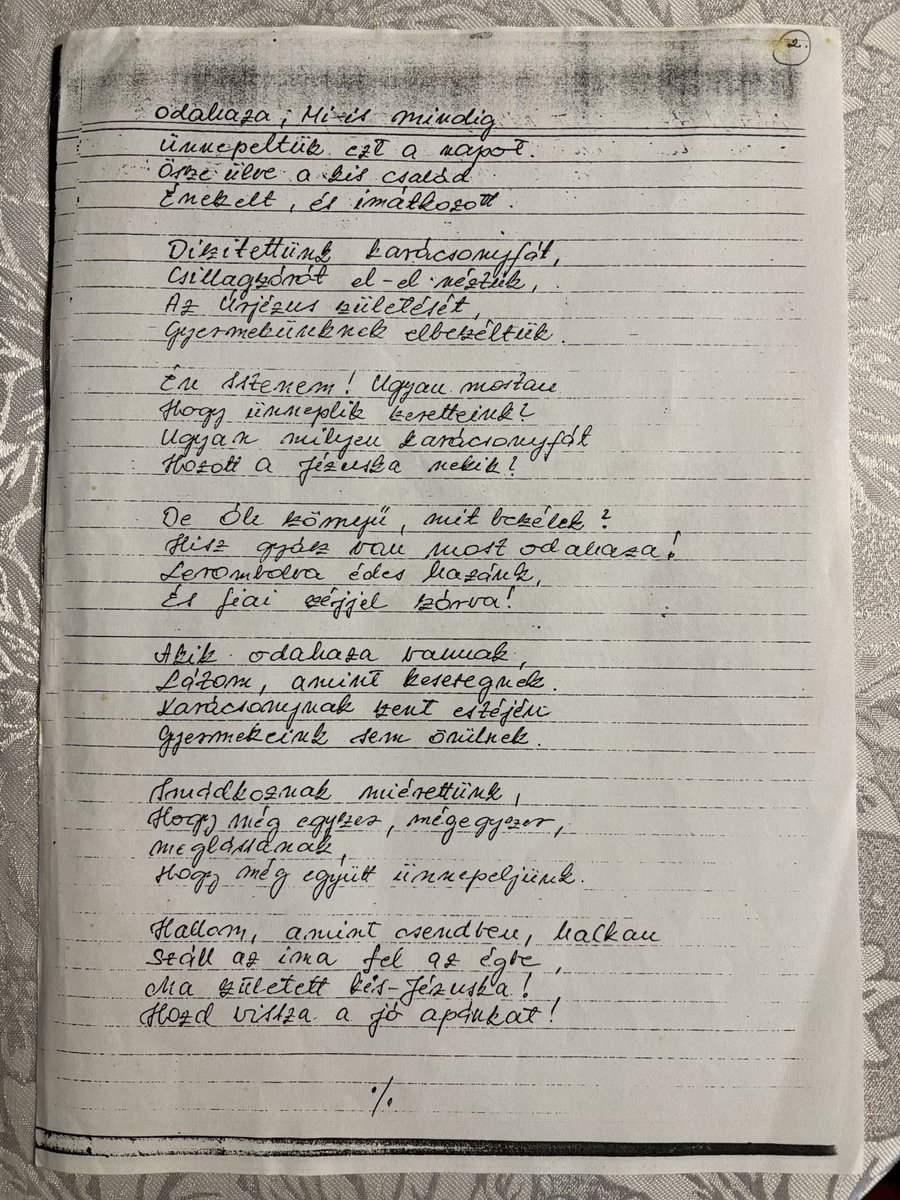 2.
odahaza; Mi-is mindig
ünnepeltük ezt a napot.
Össze ülve a kis család
Énekelt, és imátkozott.
Diszitettünk karácsonyfát,
Csillagszórót el-el néztük,
Az Úrjézus születését,
Gyermekünknek elbeszéltük.
Én Istenem! Ugyan mostan
Hogy ünneplik szeretteink?
Ugyan milyen karácsonyfát
Hozott a Jézuska nekik?
De Óh szörnyü, mit beszélek?
Hisz gyász van most odahaza!
Lerombolva édes hazánk,
És fiai széjjel szórva!
Akik odahaza vannak,
Látom, amint keseregnek.
Karácsonynak szent estéjén
Gyermekeink sem örülnek.
Imádkoznak miérettünk,
Hogy még egyszer, mégegyszer,
meglássanak,
Hogy még együtt ünnepeljünk.
Hallom, amint csendben, halkan
Száll az ima fel az égbe,
Ma született kis-Jézuska!
Hozd vissza a jó apánkat!
./.